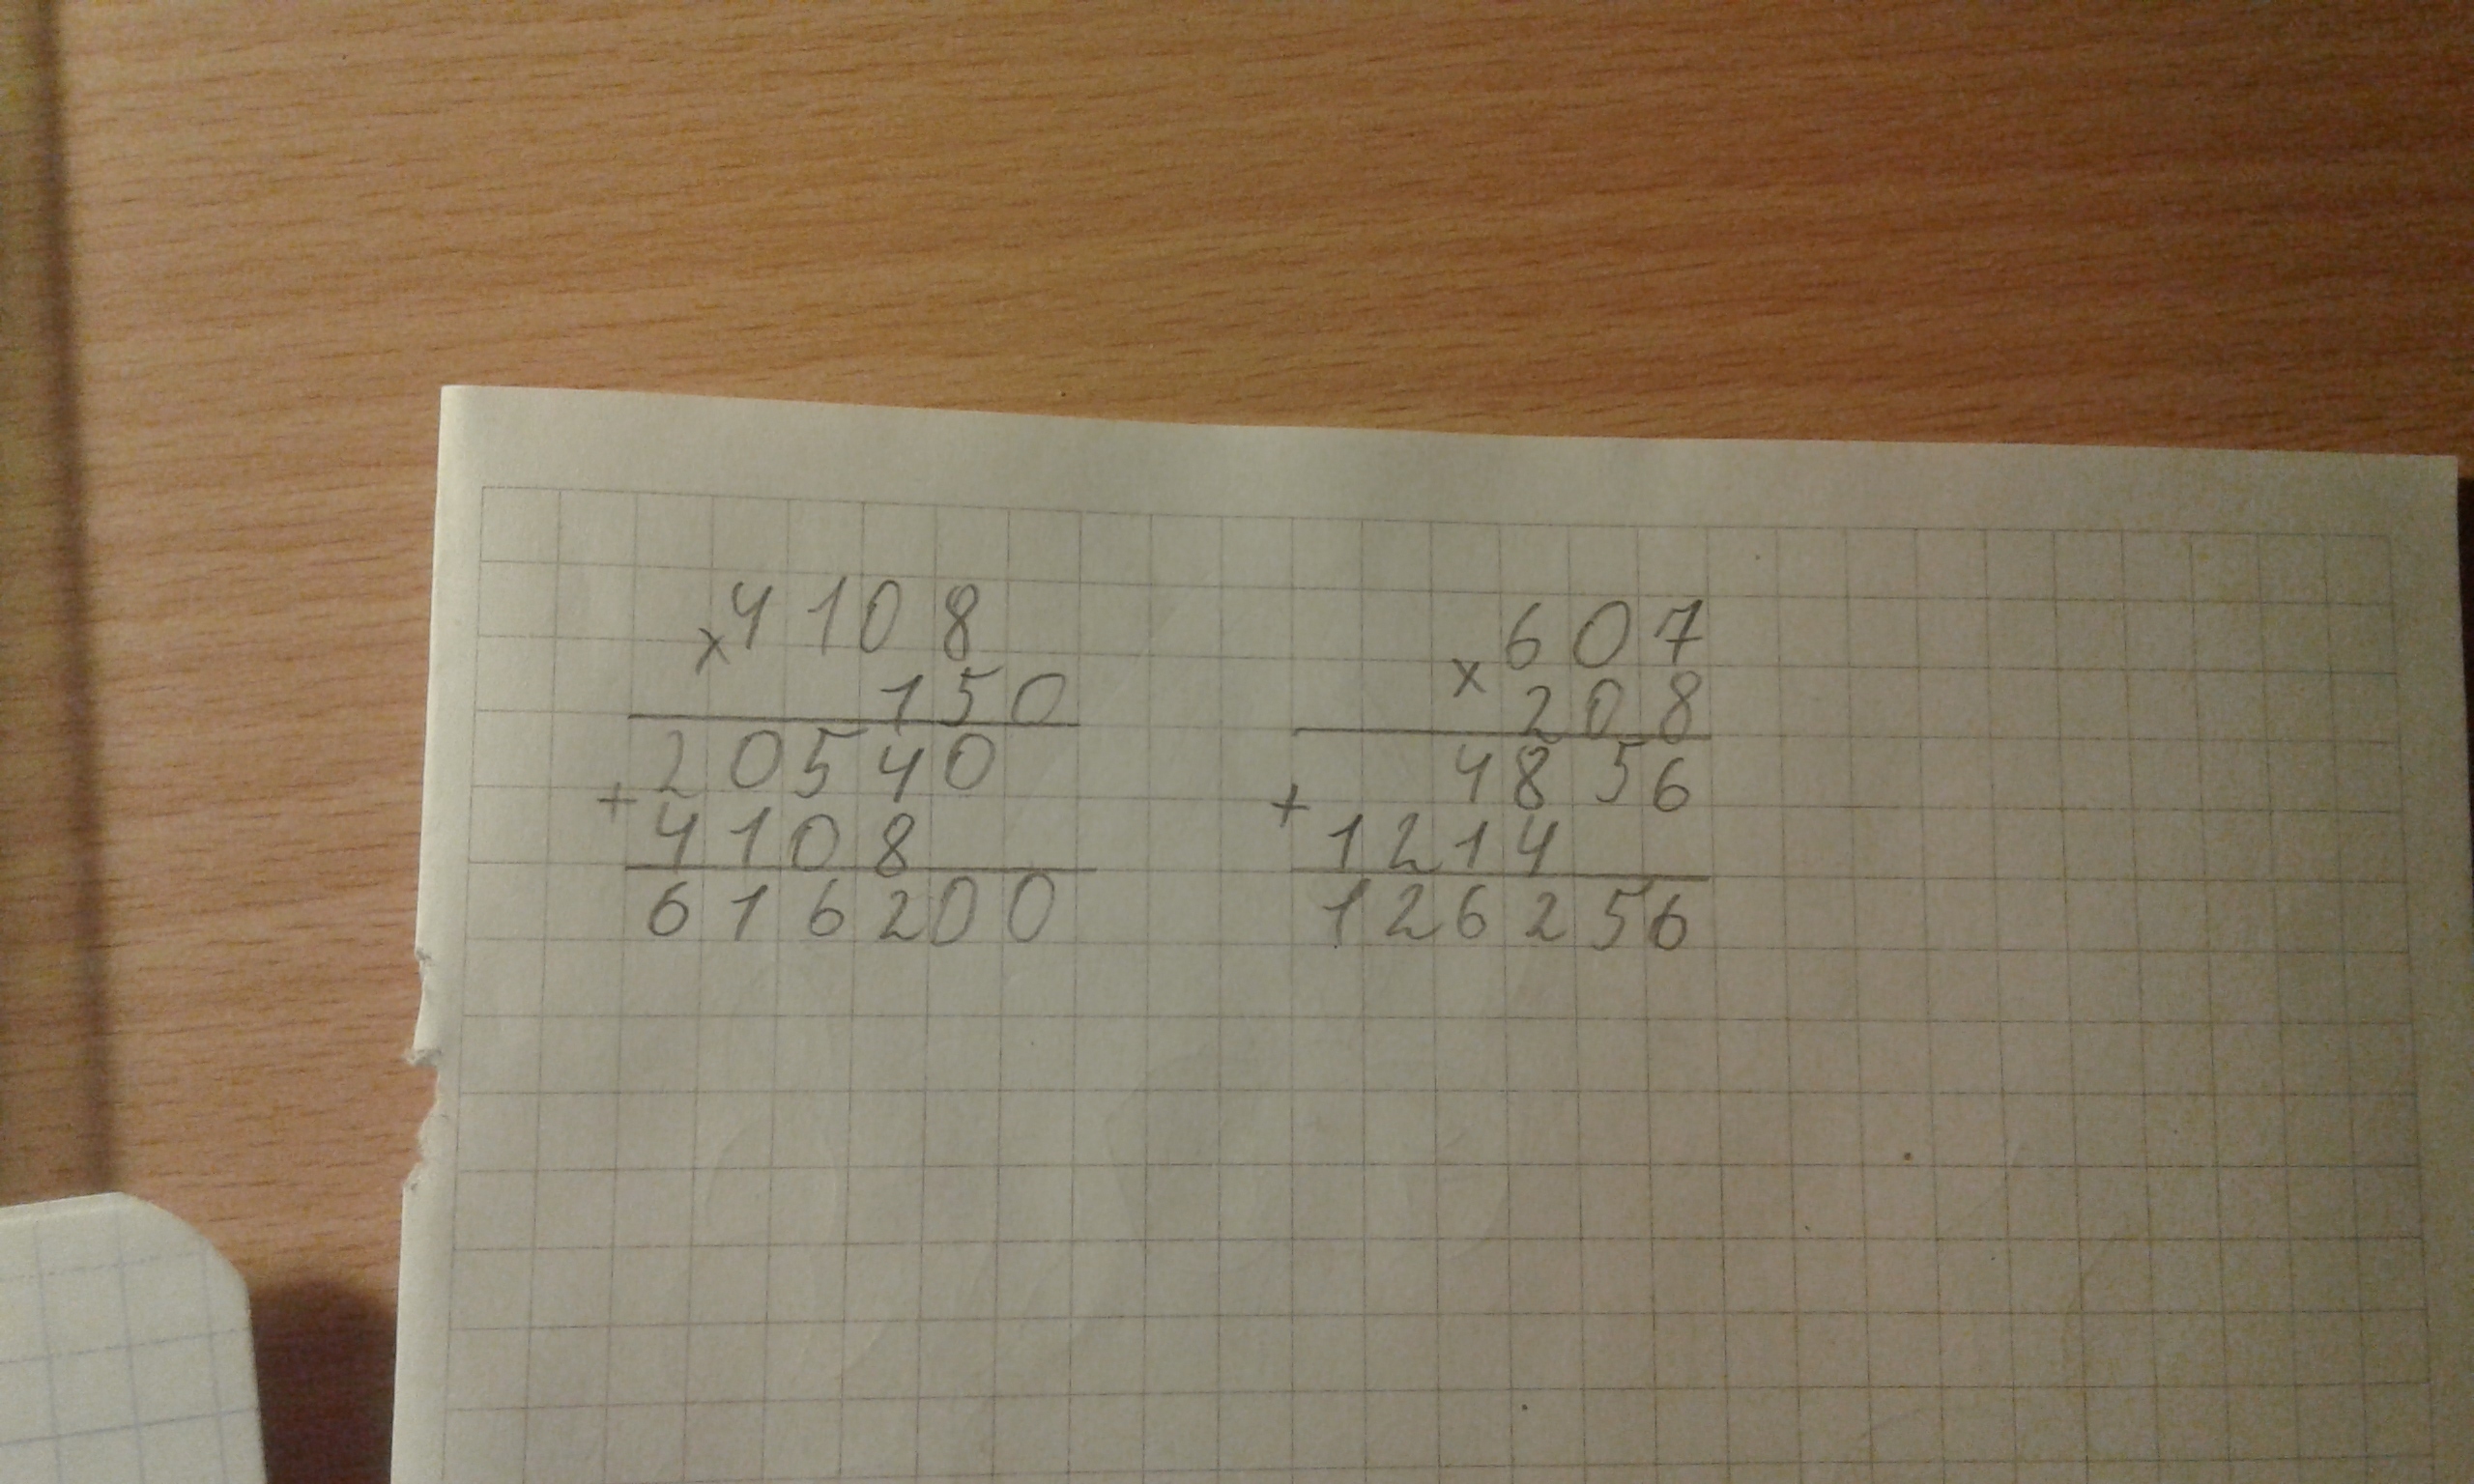 × 4108
150
20540
+ 4108
616200
× 607
208
4856
+ 1214
126256